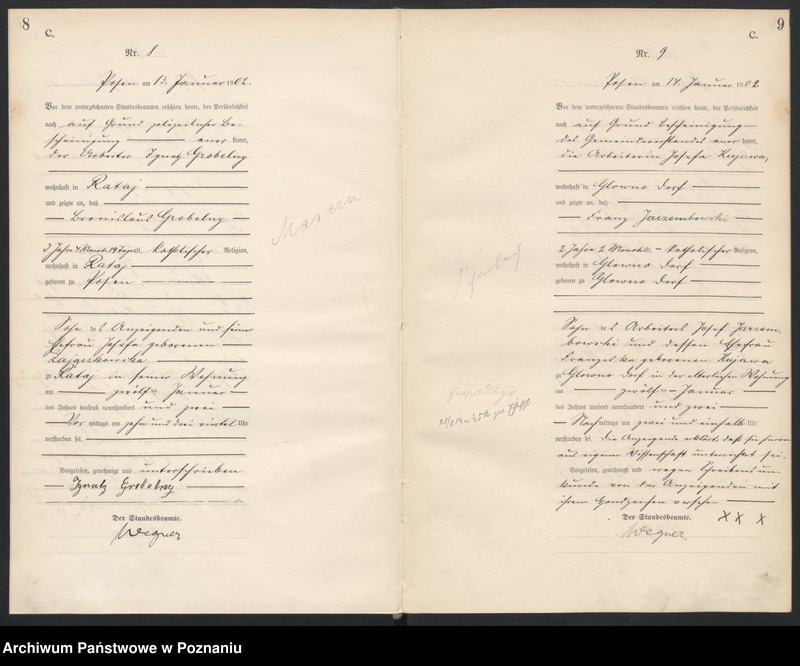 8
C.
Nr. 8
Posen am 13. Januar 1902.
Vor dem unterzeichneten Standesbeamten erschien heute, der Persönlichkeit
nach auf Grund polizeilicher Be-
scheinigung aner kannt,
der Arbeiter Ignatz Grobelny
wohnhaft in Rataj
und zeigte an, daß
Bronislaus Grobelny
3 Jahre 4 Monate 19 Tage alt, katholischer Religion,
wohnhaft in Rataj
geboren zu Posen
Sohn des Anzeigenden und seiner
Ehefrau Josefa geborenen
zu Rataj in seiner Wohnung
am zwölften Januar
des Jahres tausend neunhundert und zwei
Vor mittags um zehn und drei viertel Uhr
verstorben sei.
Vorgelesen, genehmigt und unterschrieben
Ignatz Grobelny
Der Standesbeamte.
Wegner
Masern
9
C.
Nr. 9
Posen am 14. Januar 1902
Vor dem unterzeichneten Standesbeamten erschien heute, der Persönlichkeit
nach auf Grund Bescheinigung
des Gemeindevorstandes aner kannt,
die Arbeiterin Josefa Kujawa,
wohnhaft in Glowno Dorf
und zeigte an, daß
Franz Jarzembowski
2 Jahre 2 Monate alt, katholischer Religion,
wohnhaft in Glowno Dorf
geboren zu Glowno Dorf
Sohn des Arbeiters Josef Jarzem-
bowski und dessen Ehefrau
Franziska geborenen Kujawa
zu Glowno Dorf in der elterlichen Wohnung
am zwölften Januar
des Jahres tausend neunhundert und zwei
Nach mittags um zwei und einhalb Uhr
verstorben sei. Die Anzeigende erklärt, daß sie hiervon
aus eigener Wissenschaft unterrichtet sei.
Vorgelesen, genehmigt und wegen Schreibensun-
kunde von der Anzeigenden mit
ihrem Handzeichen versehen
XX X
Der Standesbeamte.
Wegner
Scharlach
Archiwum Państwowe w Poznaniu